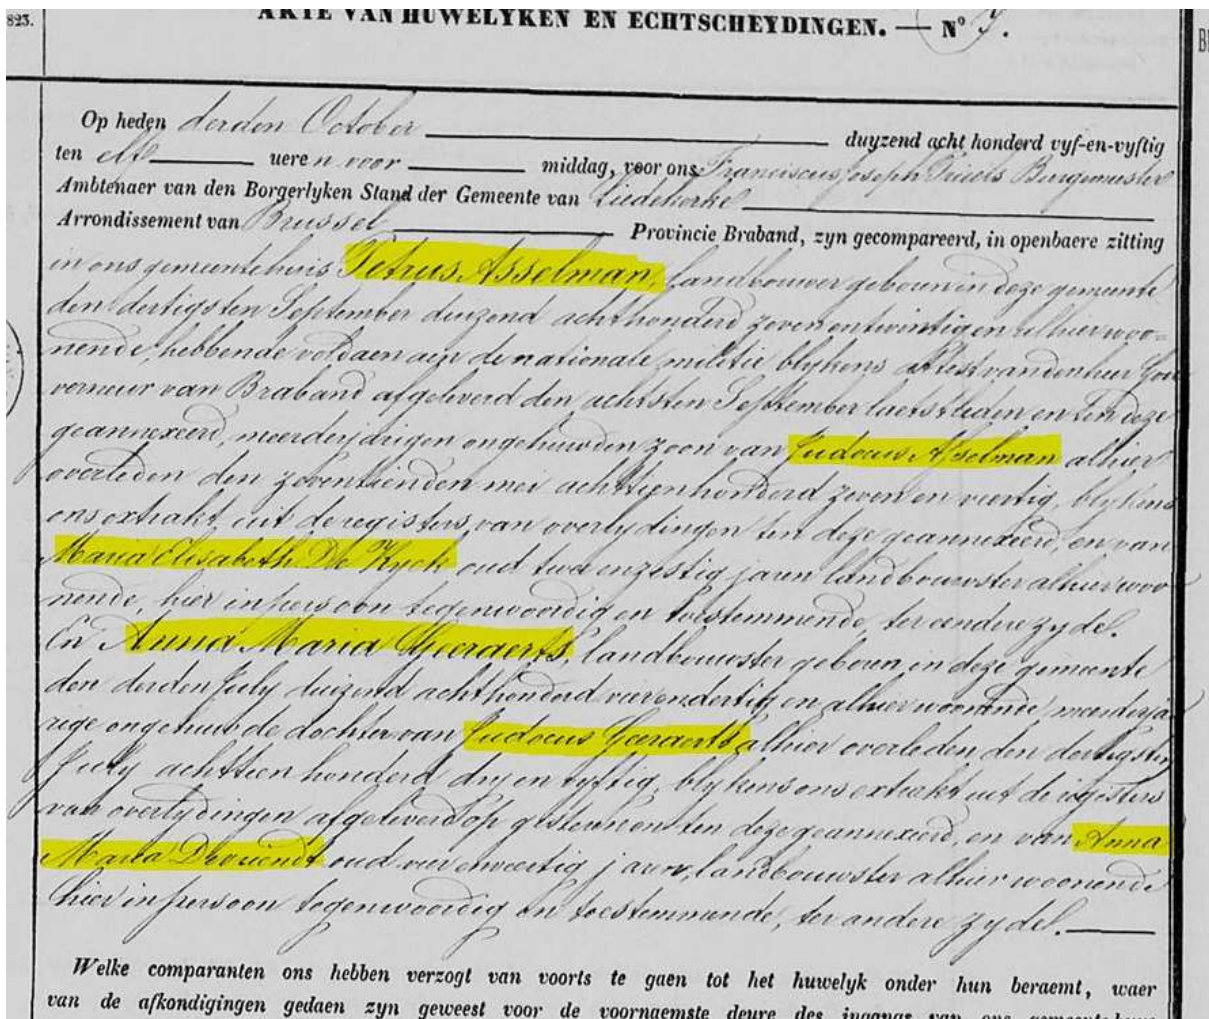 823.
AKTE VAN HUWELYKEN EN ECHTSCHEYDINGEN. — N°
Op heden derden October duyzend acht honderd vyf-en-vyftig
ten elf ueren voor middag, voor ons Franciscus Joseph Burgemeester
Ambtenaer van den Borgerlyken Stand der Gemeente van Liedekerke
Arrondissement van Brussel Provincie Braband, zyn gecompareerd, in openbaere zitting
in ons gemeentehuis Petrus Asselman, landbouwer geboren in deze gemeente
den dertigsten September duizend achthonderd zevenentwintig en alhier woo-
nende, hebbende voldaen aen de nationale militie blykens attest van den heer Gou
verneur van Braband afgeleverd den achtsten September laetstleden en ten deze
geannexeerd, meerderjarigen ongehuwden zoon van Judocus Asselman alhier
overleden den zeventienden mei achttienhonderd zeven en veertig, blykens
ons extrakt uit de registers van overlydingen ten deze geannexeerd, en van
Maria Elisabeth De Kyck oud twee en zestig jaren landbouwster alhier woo
nende, hier in persoon tegenwoordig en toestemmende, ter eendere zyde.
En Anna Maria Geeraerts, landbouwster geboren in deze gemeente
den derden July duizend achthonderd vierendertig en alhier woonende, meerderja
rige ongehuwde dochter van Judocus Geeraerts alhier overleden den dertigsten
July achttien honderd dry en vyftig, blykens ons extrakt uit de registers
van overlydingen afgeleverd op gisteren en ten deze geannexeerd, en van Anna
Maria Devriendt oud vier en veertig jaren, landbouwster alhier woonende
hier in persoon tegenwoordig en toestemmende, ter andere zyde.
Welke comparanten ons hebben verzogt van voorts te gaen tot het huwelyk onder hun beraemt, waer
van de afkondigingen gedaen zyn geweest voor de voornaemste deure des ingangs van ons gemeente-huys